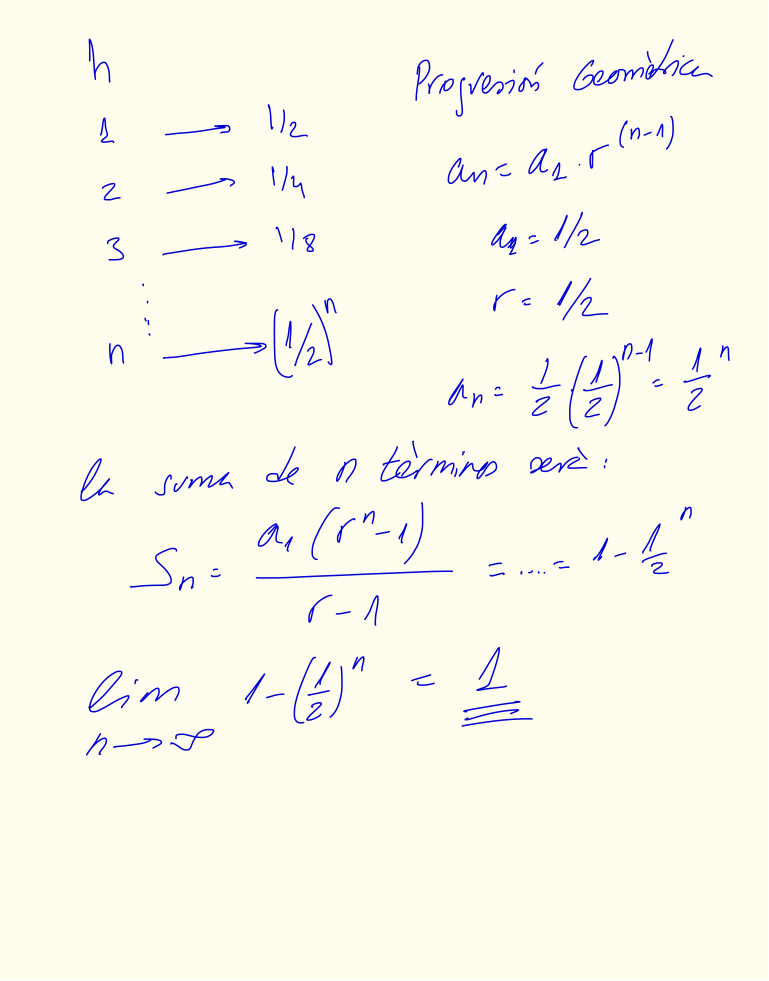 n
1 → 1/2
2 → 1/4
3 → 1/8
⋮
n → (1/2)^n
Progresión Geomètrica
an = a1 · r^(n-1)
a1 = 1/2
r = 1/2
an = 1/2 (1/2)^n-1 = 1/2^n
la suma de n tèrminos serà:
Sn = a1 (r^n - 1) / r - 1 = .... = 1 - 1/2^n
lim n→∞ 1 - (1/2)^n = 1